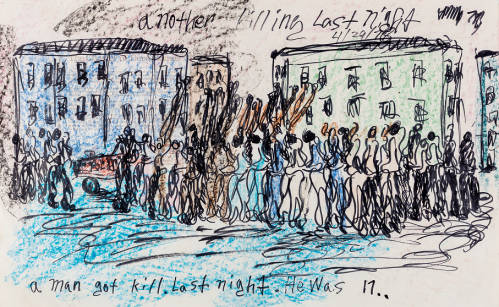 another killing Last night
a man got kill. Last night. He Was 17..